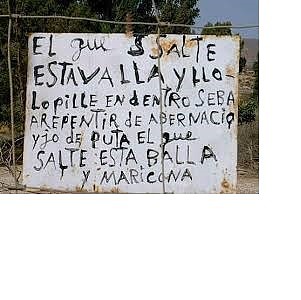 EL que SALTE
ESTAVALLA y LLO-
LO PILLE EN DENTRO SE BA
AREPENTIR DE ABER NACIO
yJO DE PUTA EL que
SALTE ESTA BALLA
y MARICONA